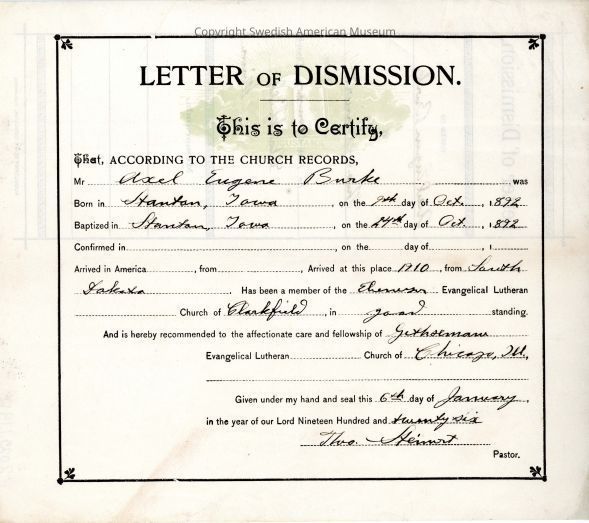 Copyright Swedish American Museum
LETTER OF DISMISSION.
This is to Certify,
That, ACCORDING TO THE CHURCH RECORDS,
Mr Axel Eugene Burke was
Born in Stanton, Iowa, on the 9th day of Oct, 1892
Baptized in Stanton, Iowa, on the 24th day of Oct, 1892
Confirmed in, on the day of, 1
Arrived in America, from, Arrived at this place 1910, from South
Dakota Has been a member of the Ebenezer Evangelical Lutheran
Church of Clarkfield, in good standing.
And is hereby recommended to the affectionate care and fellowship of Gethsemane
Evangelical Lutheran Church of Chicago, Ill,
Given under my hand and seal this 6th day of January
in the year of our Lord Nineteen Hundred and twenty six
Theo.
Pastor.